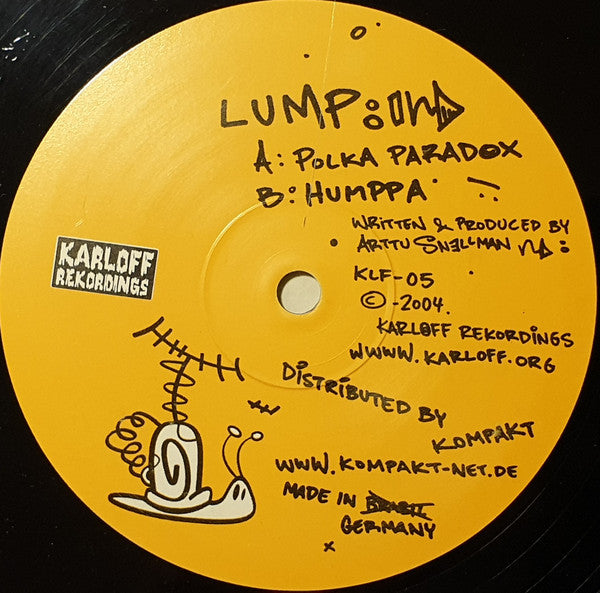 LUMP:
A: POLKA PARADOX
B: HUMPPA
WRITTEN & PRODUCED BY
ARTTU SNELLMAN
KLF-05
© -2004.
KARLOFF REKORDINGS
WWWW.KARLOFF.ORG
KARLOFF
REKORDINGS
DISTRIBUTED BY
KOMPAKT
WWW.KOMPAKT-NET.DE
MADE IN BRASIL
GERMANY